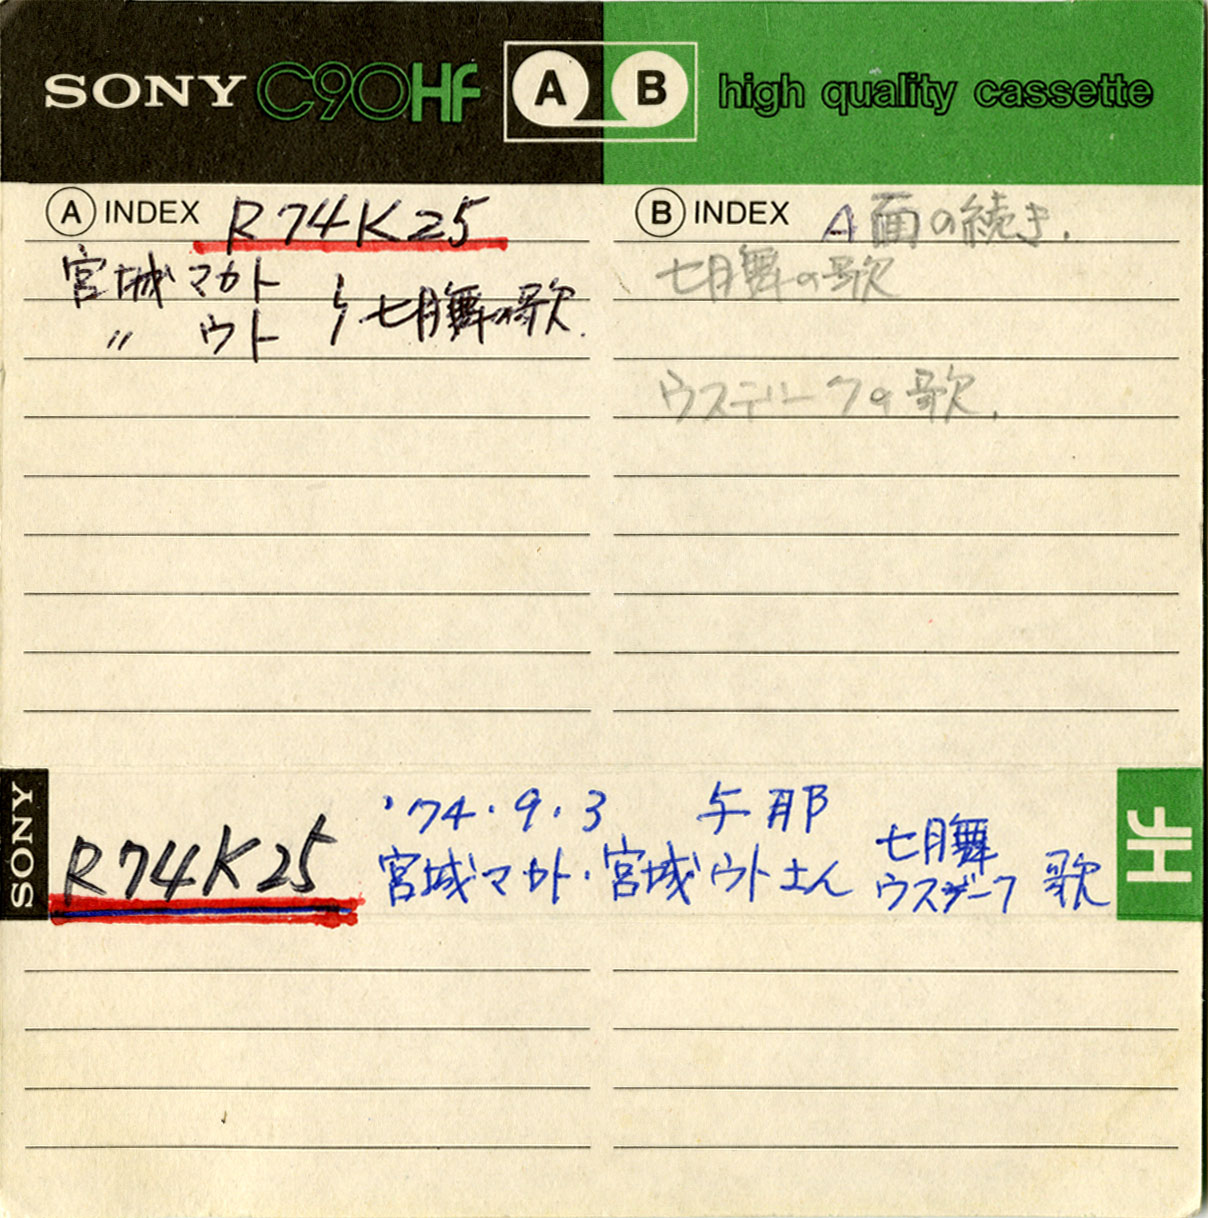 SONY C90HF A B high quality cassette
A INDEX R74K25
宮城マカト
〃 ウト } 七月舞の歌.
B INDEX A面の続き.
七月舞の歌
ウスデークの歌.
SONY
R74K25
'74.9.3 与那
宮城マカト・宮城ウトさん
七月舞
ウスデーク
歌
HF